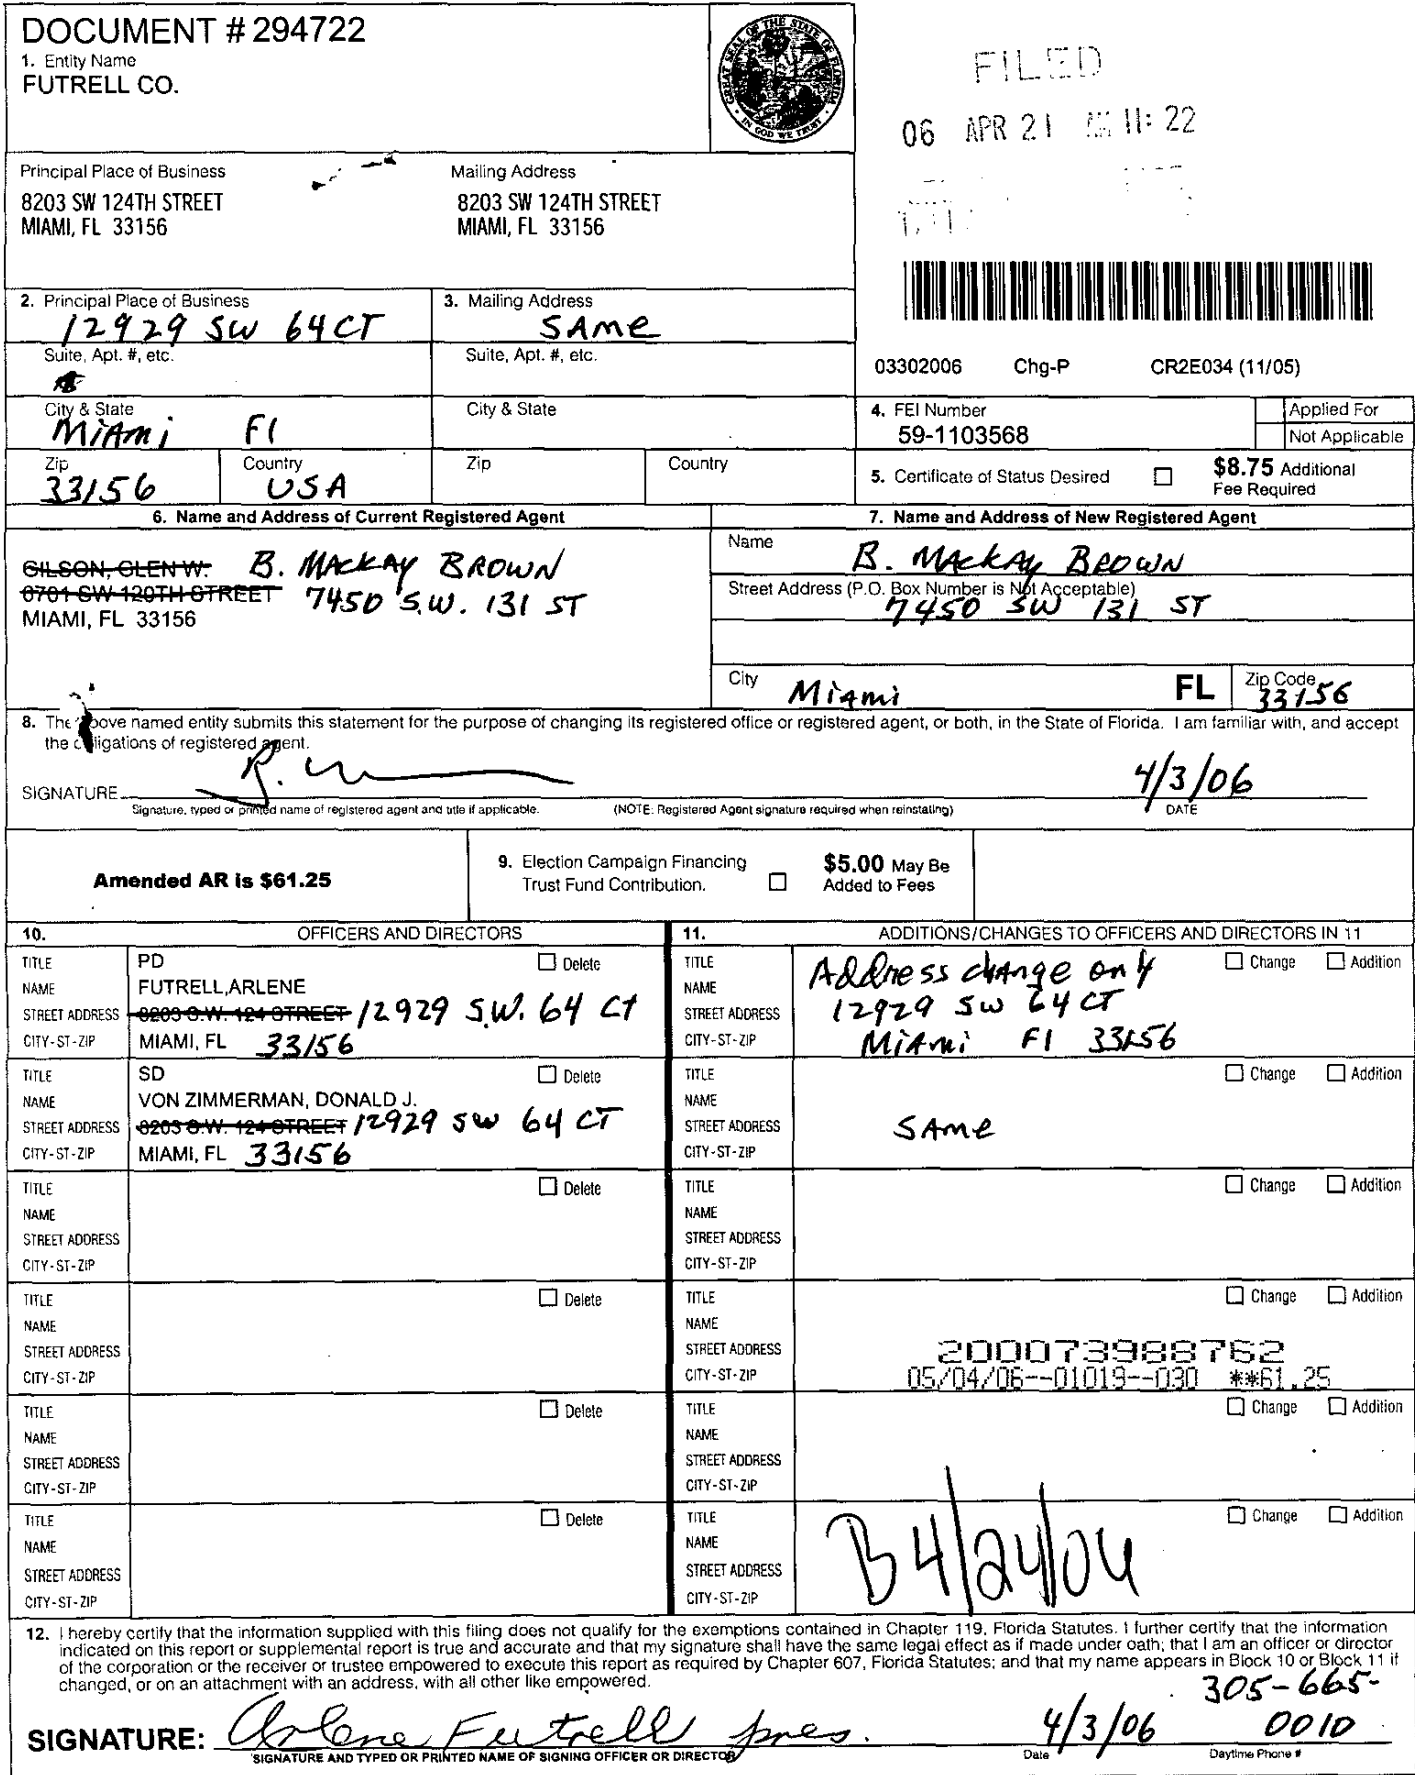 DOCUMENT # 294722
1. Entity Name
FUTRELL CO.
GREAT SEAL OF THE STATE OF FLORIDA
IN GOD WE TRUST
FILED
06 APR 21 AM 11: 22
Principal Place of Business
8203 SW 124TH STREET
MIAMI, FL 33156
Mailing Address
8203 SW 124TH STREET
MIAMI, FL 33156
2. Principal Place of Business
12929 SW 64 CT
3. Mailing Address
SAME
Suite, Apt. #, etc.
Suite, Apt. #, etc.
03302006 Chg-P CR2E034 (11/05)
City & State
MiAmi Fl
City & State
4. FEI Number
59-1103568
Applied For
Not Applicable
Zip
33156
Country
USA
Zip
Country
5. Certificate of Status Desired
$8.75 Additional
Fee Required
6. Name and Address of Current Registered Agent
GILSON, GLEN W. B. MACKAY BROWN
8701 SW 120TH STREET 7450 S.W. 131 ST
MIAMI, FL 33156
7. Name and Address of New Registered Agent
Name
B. MACKAY BROWN
Street Address (P.O. Box Number is Not Acceptable)
7450 SW 131 ST
City Miami FL Zip Code
33156
8. The above named entity submits this statement for the purpose of changing its registered office or registered agent, or both, in the State of Florida. I am familiar with, and accept
the obligations of registered agent.
SIGNATURE
4/3/06
Signature, typed or printed name of registered agent and title if applicable. (NOTE: Registered Agent signature required when reinstating) DATE
Amended AR is $61.25
9. Election Campaign Financing
Trust Fund Contribution.
$5.00 May Be
Added to Fees
10. OFFICERS AND DIRECTORS
11. ADDITIONS/CHANGES TO OFFICERS AND DIRECTORS IN 11
TITLE PD Delete
NAME FUTRELL,ARLENE
STREET ADDRESS 8203 S.W. 124 STREET 12929 S.W. 64 CT
CITY-ST-ZIP MIAMI, FL 33156
TITLE Address change only Change Addition
NAME
STREET ADDRESS 12929 SW 64 CT
CITY-ST-ZIP MiAmi Fl 33156
TITLE SD Delete
NAME VON ZIMMERMAN, DONALD J.
STREET ADDRESS 8203 S.W. 124 STREET 12929 SW 64 CT
CITY-ST-ZIP MIAMI, FL 33156
TITLE Change Addition
NAME
STREET ADDRESS SAME
CITY-ST-ZIP
TITLE Delete
NAME
STREET ADDRESS
CITY-ST-ZIP
TITLE Change Addition
NAME
STREET ADDRESS
CITY-ST-ZIP
TITLE Delete
NAME
STREET ADDRESS
CITY-ST-ZIP
TITLE Change Addition
NAME
STREET ADDRESS 200073988762
CITY-ST-ZIP 05/04/06--01019--030 **61.25
TITLE Delete
NAME
STREET ADDRESS
CITY-ST-ZIP
TITLE Change Addition
NAME
STREET ADDRESS
CITY-ST-ZIP
TITLE Delete
NAME
STREET ADDRESS
CITY-ST-ZIP
TITLE Change Addition
NAME
STREET ADDRESS B 4/24/06
CITY-ST-ZIP
12. I hereby certify that the information supplied with this filing does not qualify for the exemptions contained in Chapter 119, Florida Statutes. I further certify that the information
indicated on this report or supplemental report is true and accurate and that my signature shall have the same legal effect as if made under oath; that I am an officer or director
of the corporation or the receiver or trustee empowered to execute this report as required by Chapter 607, Florida Statutes; and that my name appears in Block 10 or Block 11 if
changed, or on an attachment with an address, with all other like empowered.
305-665-
SIGNATURE: Arlene Futrell pres. 4/3/06 0010
SIGNATURE AND TYPED OR PRINTED NAME OF SIGNING OFFICER OR DIRECTOR Date Daytime Phone #